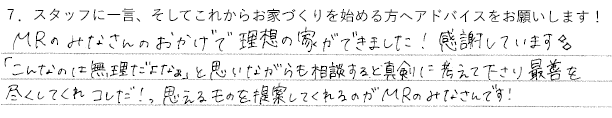 7. スタッフに一言、そしてこれからお家づくりを始める方へアドバイスをお願いします！
MRのみなさんのおかげで理想の家ができました！感謝しています
「こんなのは無理だよなぁ」と思いながらも相談すると真剣に考えて下さり最善を
尽くしてくれコレだ！っ思えるものを提案してくれるのがMRのみなさんです！